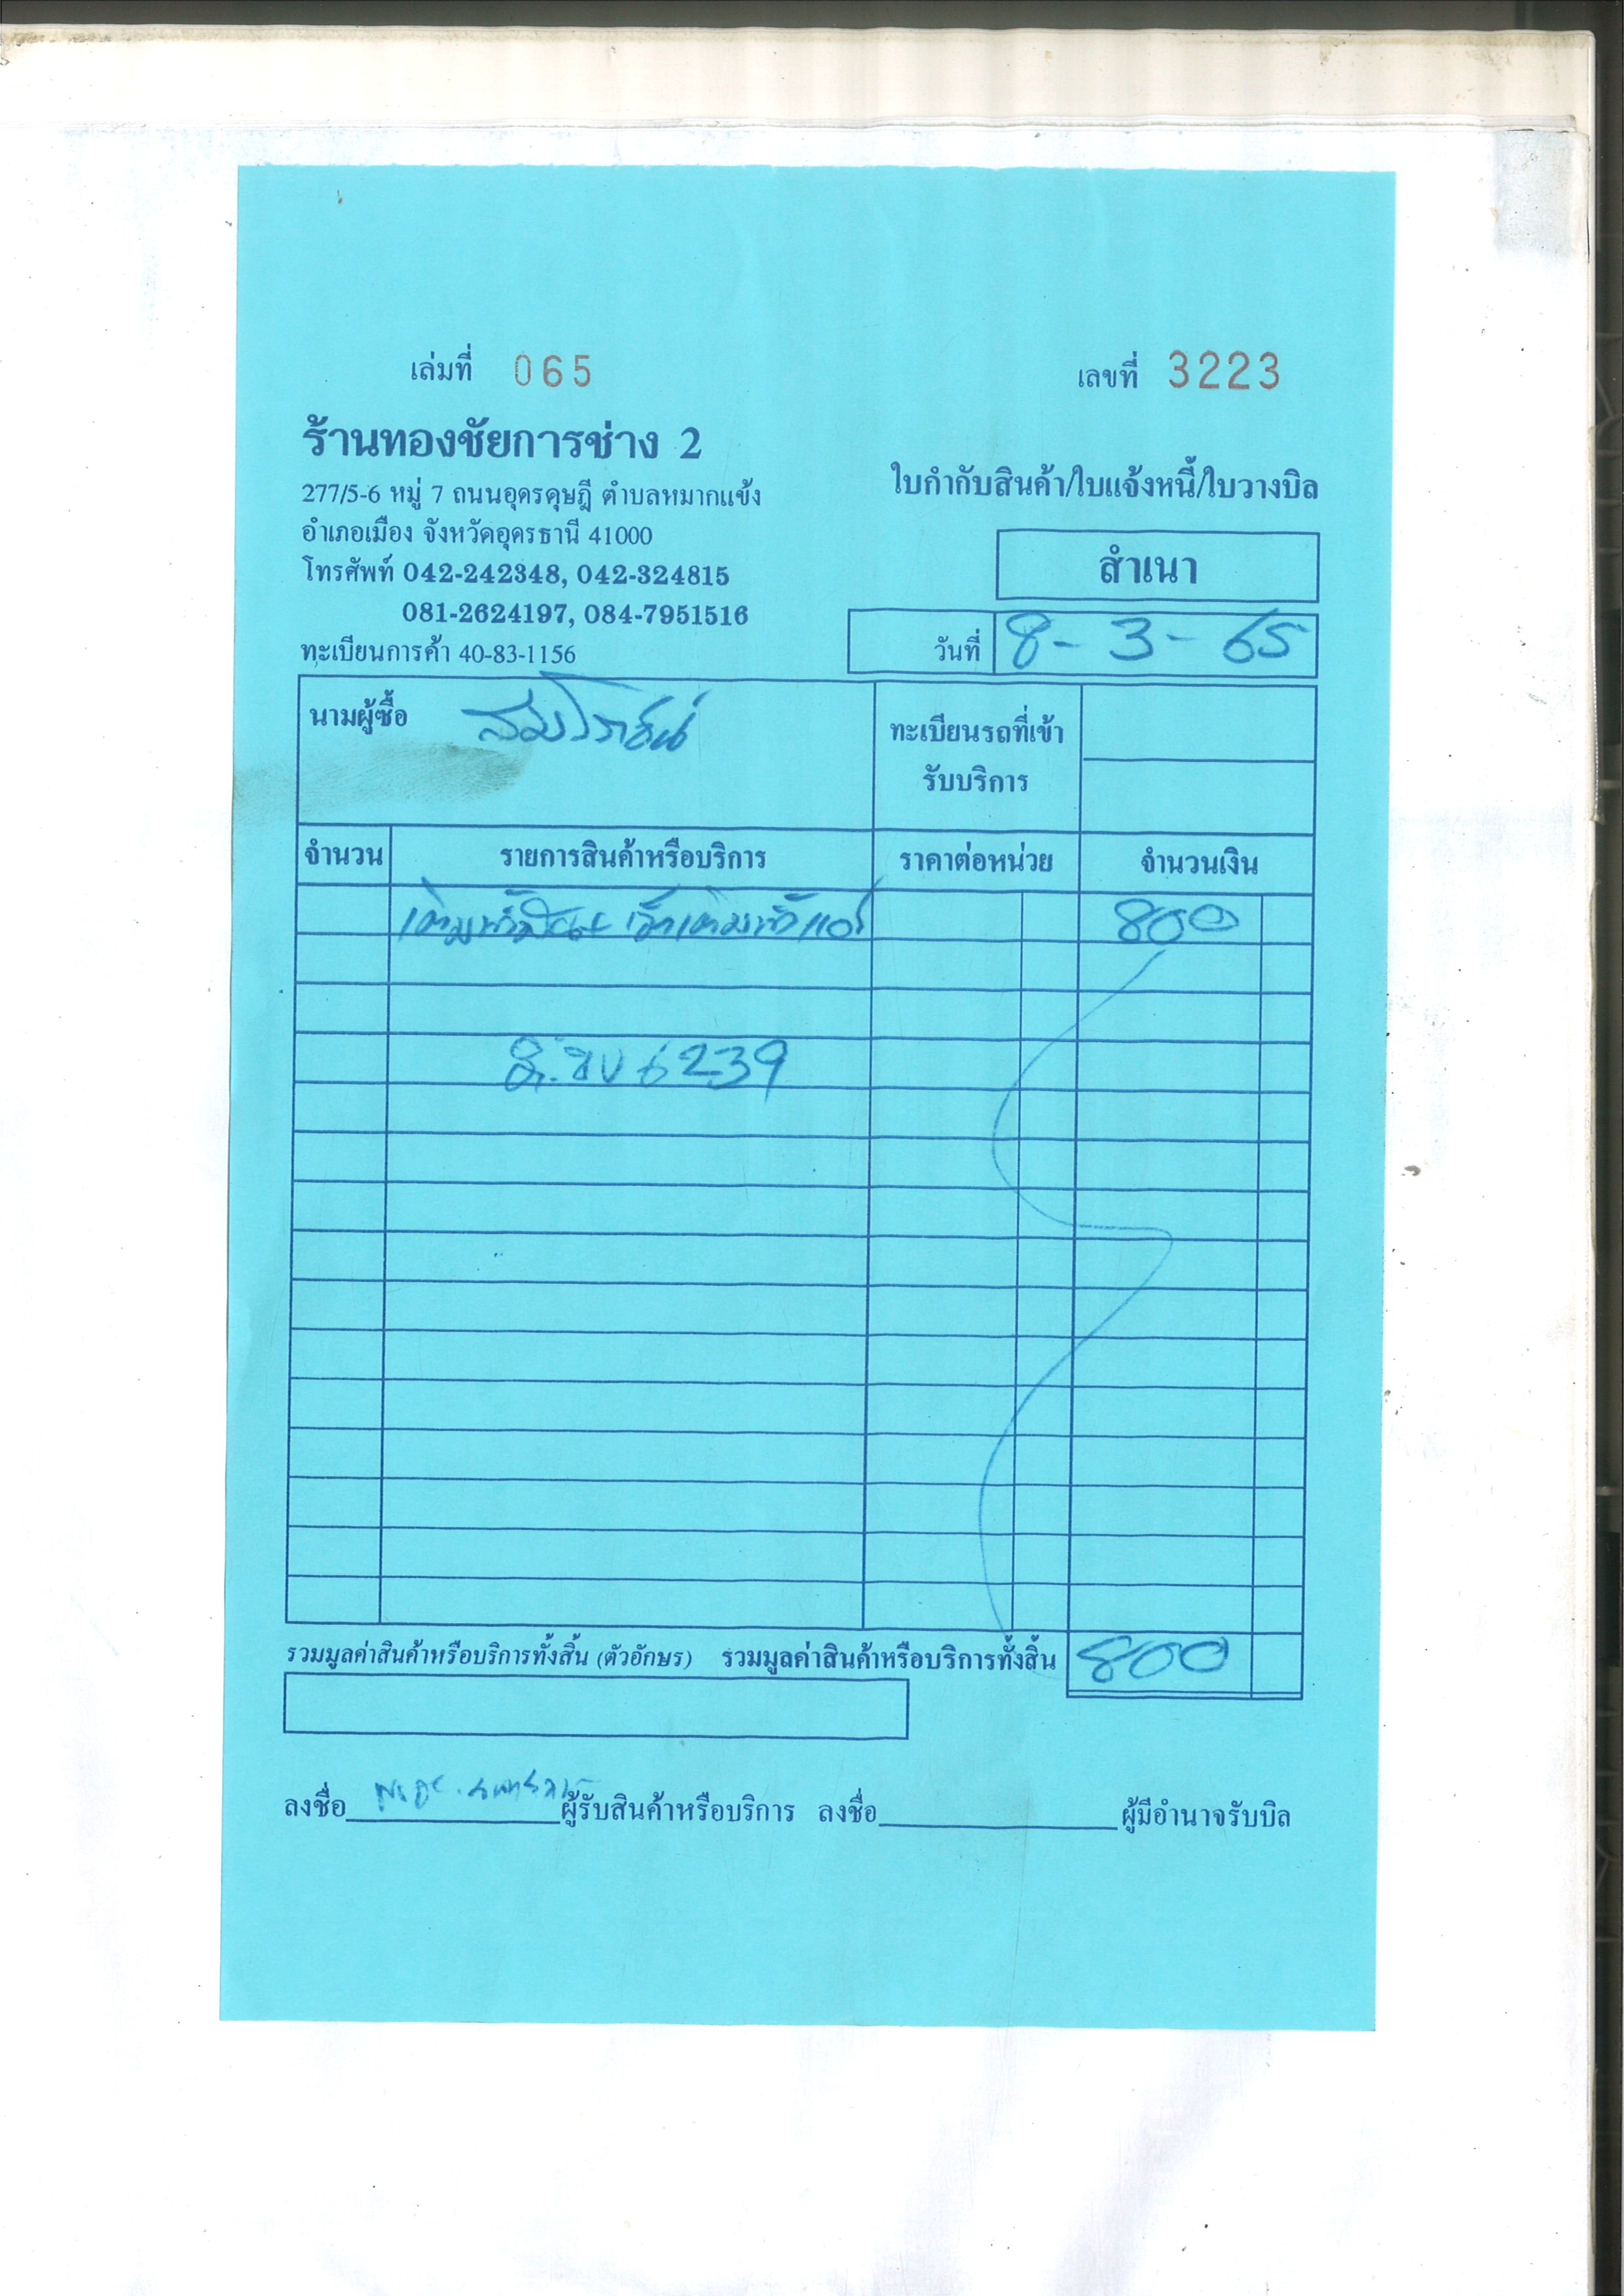 เล่มที่ 065 เลขที่ 3223
ร้านทองชัยการช่าง 2
277/5-6 หมู่ 7 ถนนอุดรดุษฎี ตำบลหมากแข้ง
อำเภอเมือง จังหวัดอุดรธานี 41000
โทรศัพท์ 042-242348, 042-324815
081-2624197, 084-7951516
ทะเบียนการค้า 40-83-1156
ใบกำกับสินค้า/ใบแจ้งหนี้/ใบวางบิล
สำเนา
วันที่ 8-3-65
นามผู้ซื้อ
ทะเบียนรถที่เข้า
รับบริการ
จำนวน รายการสินค้าหรือบริการ ราคาต่อหน่วย จำนวนเงิน
800
6239
รวมมูลค่าสินค้าหรือบริการทั้งสิ้น (ตัวอักษร) รวมมูลค่าสินค้าหรือบริการทั้งสิ้น 800
ลงชื่อ ผู้รับสินค้าหรือบริการ ลงชื่อ ผู้มีอำนาจรับบิล